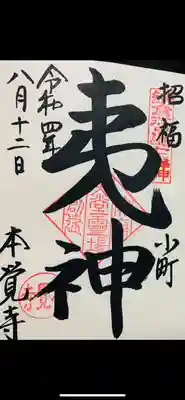 招福
小町
夷神
本覚寺
令和四年
八月十二日